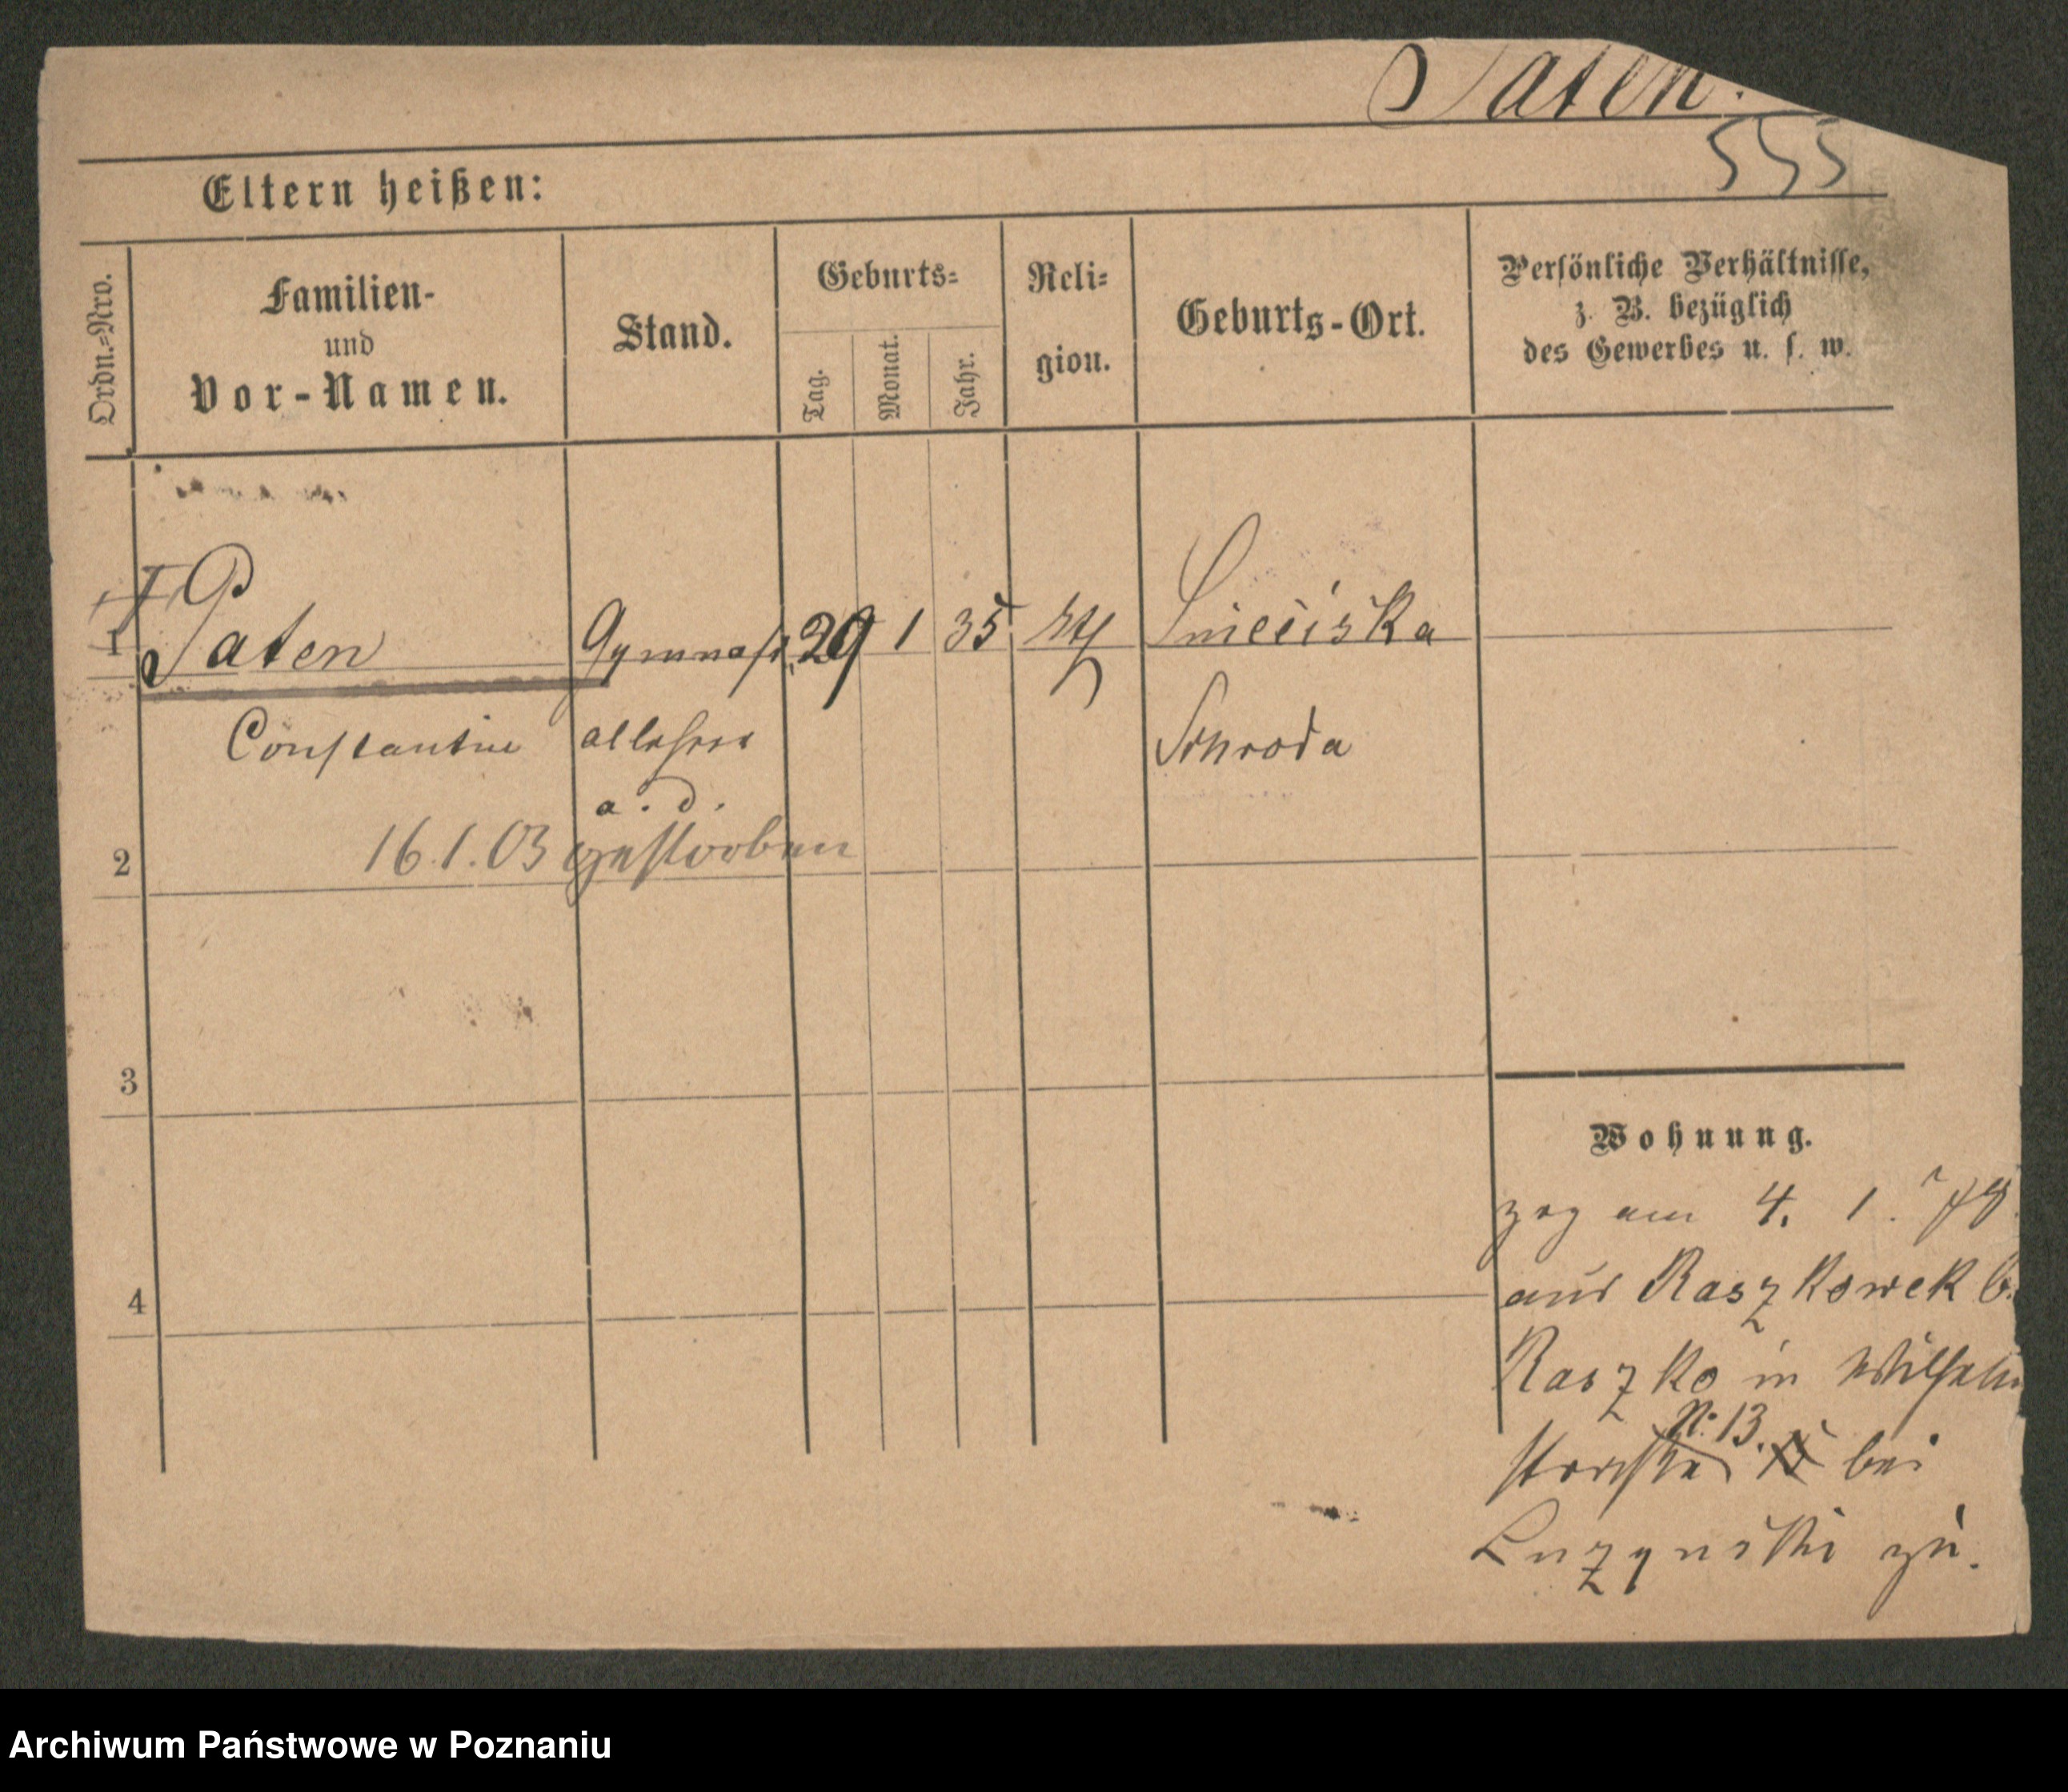 Paten.
555
Eltern heißen:
Ordn.-Nro.
Familien-
und
Vor-Namen.
Stand.
Geburts-
Tag.
Monat.
Jahr.
Reli-
gion.
Geburts-Ort.
Persönliche Verhältnisse,
z. B. bezüglich
des Gewerbes u. s. w.
1
Paten
Gymnasi
29
1
35
kth
Snieciska
Constantin
allehrer
Schroda
a. d.
2
16.1.03 gestorben
3
Wohnung.
zog am 4. 1. 78
4
aus Raszkowek b.
Raszko in Wilhelm
N. 13.
straße bei
Luzynski zu.
Archiwum Państwowe w Poznaniu